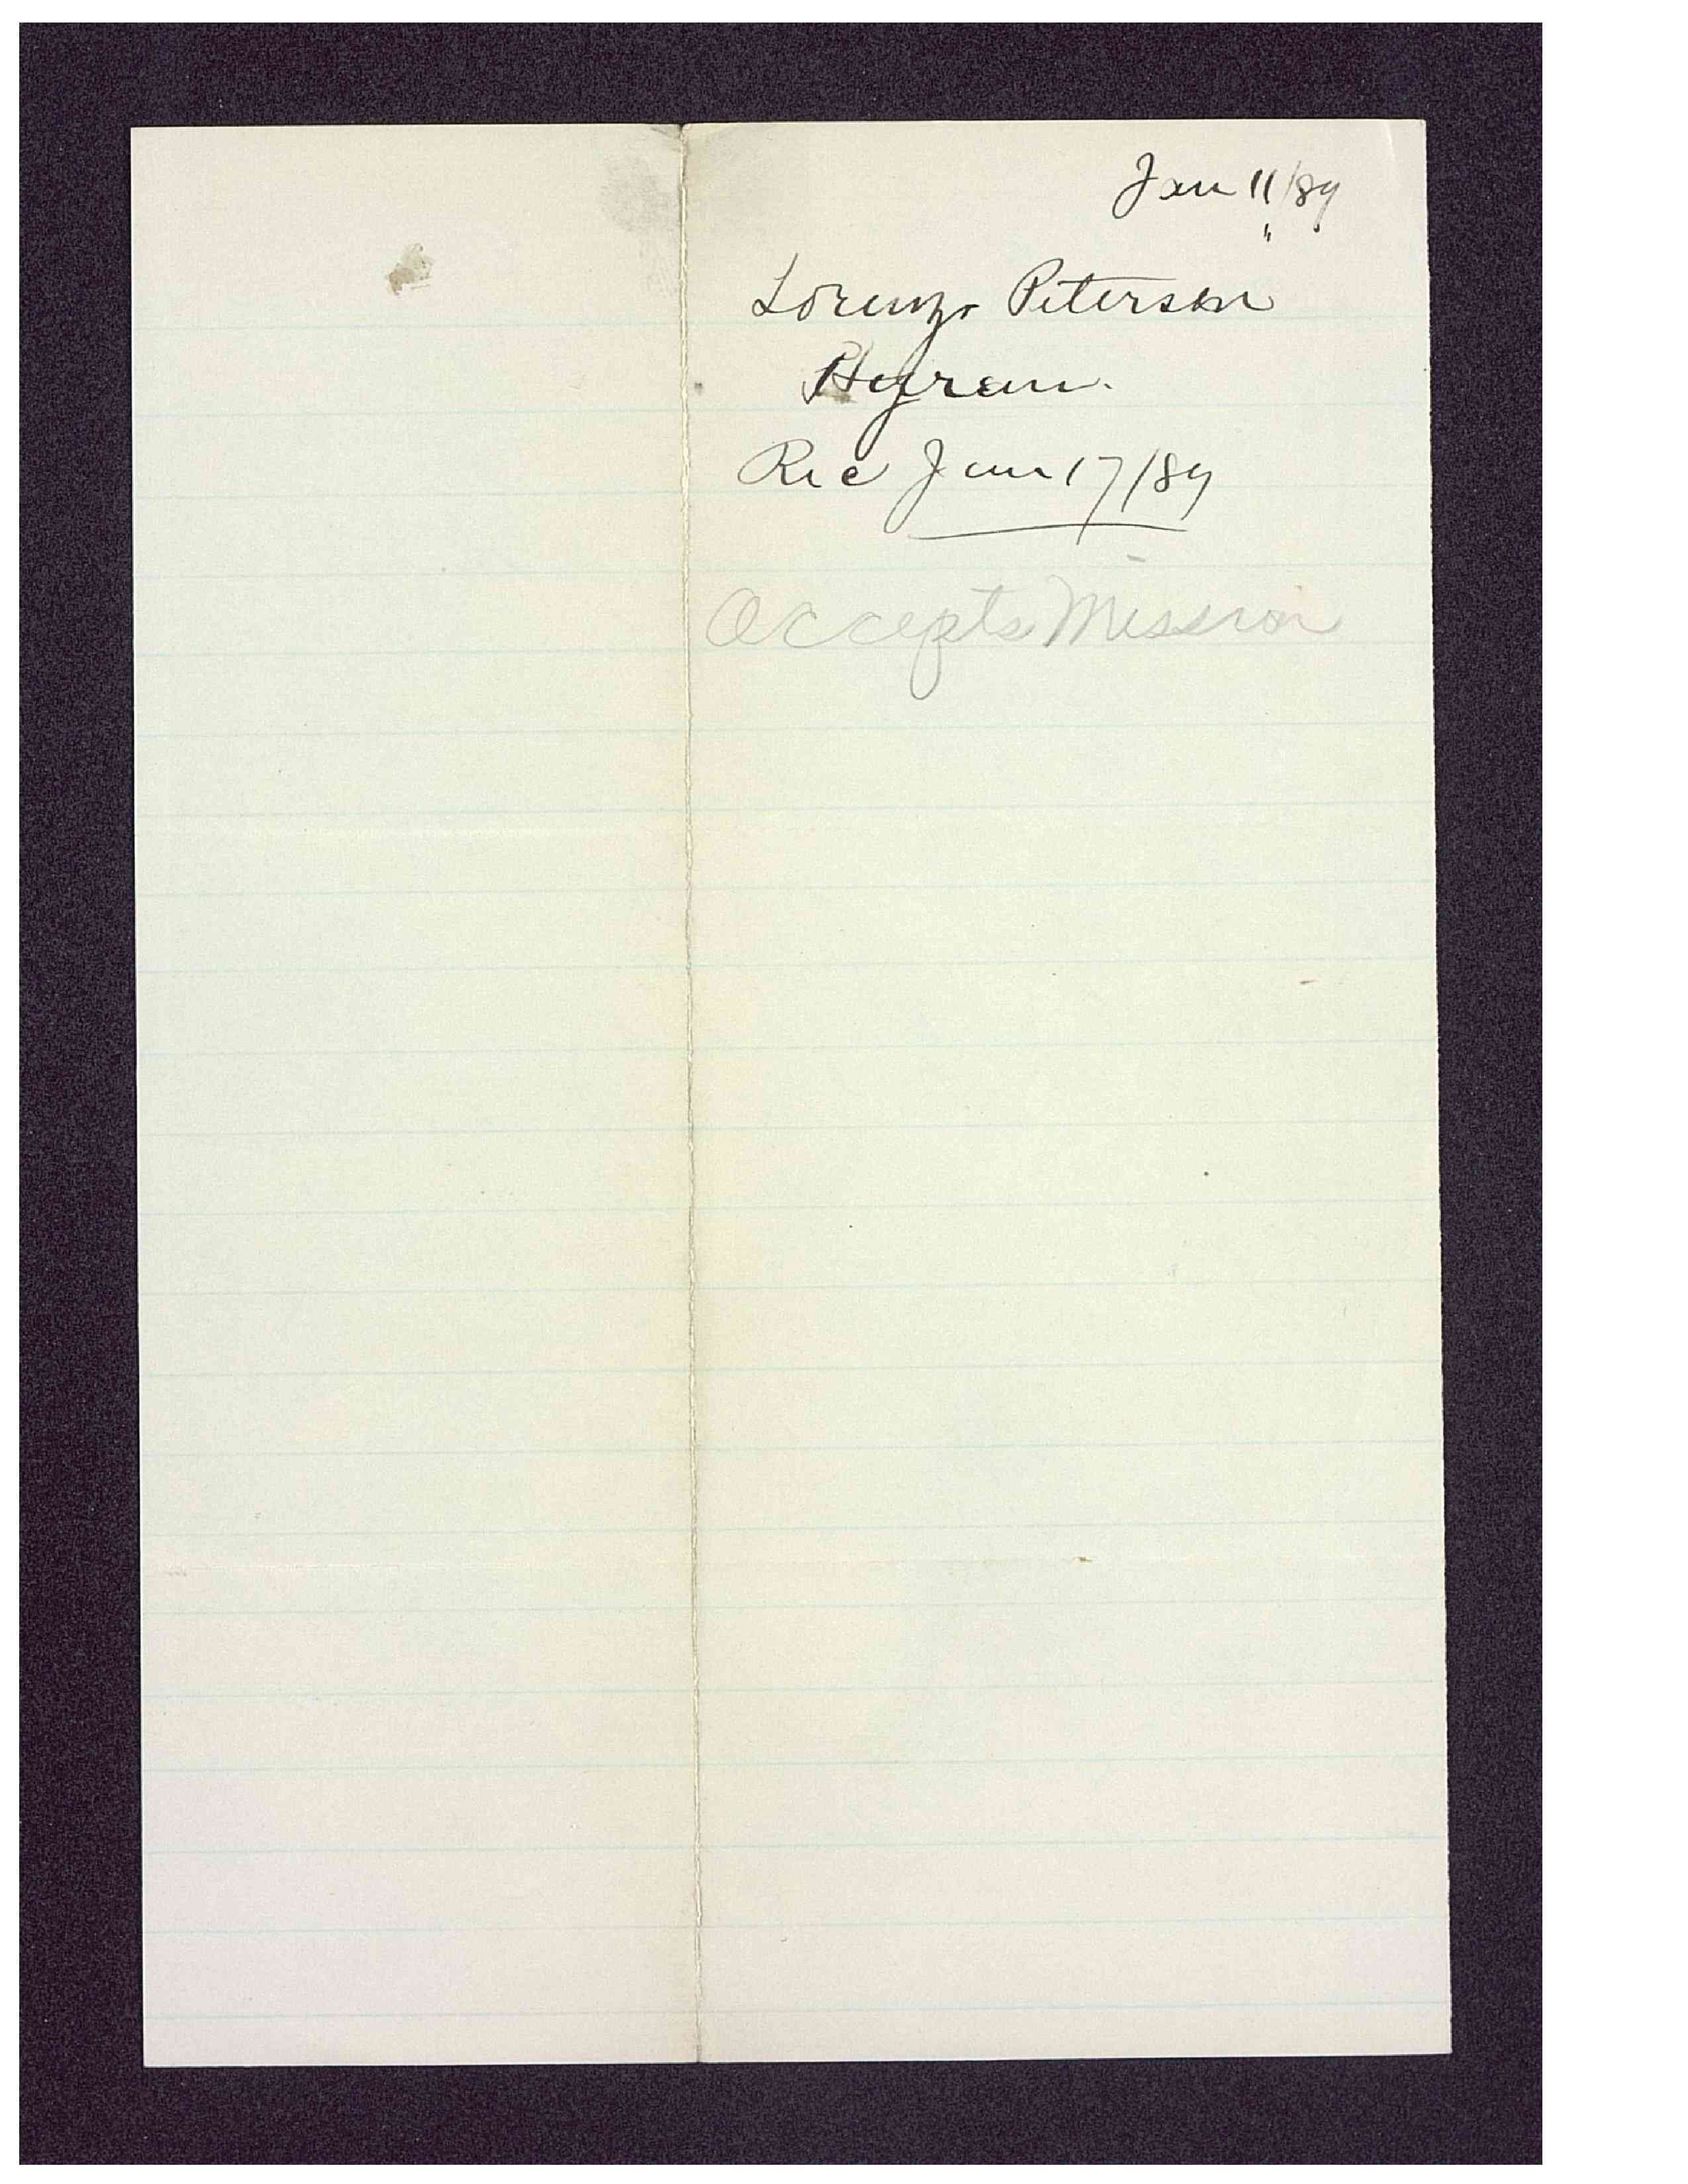 Jan 11/89
"
Lorenzo Peterson
Hyrum.
Rec Jan 17/89
Accepts Mission